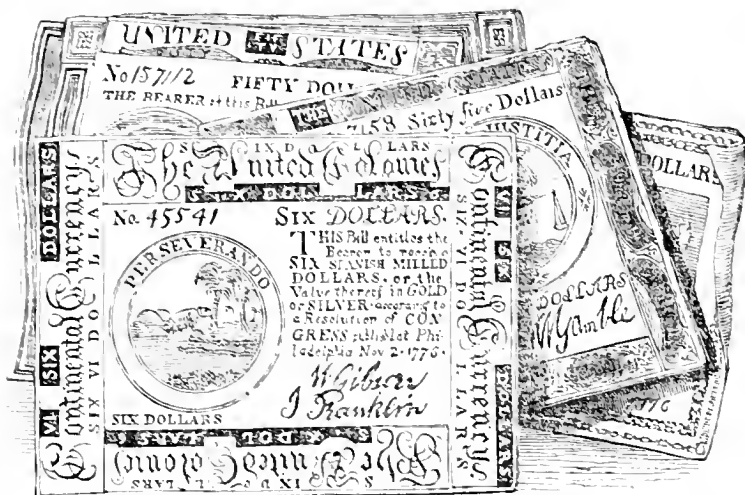 UNITED STATES
No 157112 FIFTY DOL
THE BEARER of this Bill
7158 Sixty five Dollars
JUSTITIA
DOLLARS
DOLLARS
W Gamble
SIX DOLLARS
The United Colonies
SIX DOLLARS
No. 45541 SIX DOLLARS.
THIS Bill entitles the
Bearer to receive
SIX SPANISH MILLED
DOLLARS, or the
Value thereof in GOLD
or SILVER according to
a Resolution of CON
GRESS published at Phi
ladelphia Nov 2. 1776.
PERSEVERANDO
W Gibson
J Franklin
SIX DOLLARS
VI SIX DOLLARS
Continental Currency
SIX VI DOLLARS
Continental Currency
SIX VI DOLLARS
SIX DOLLARS
The United Colonies
SIX DOLLARS